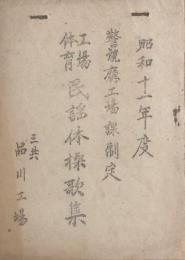 昭和十一年度
警視廳工場課制定
工場
体育 民謡体操歌集
三共
品川工場